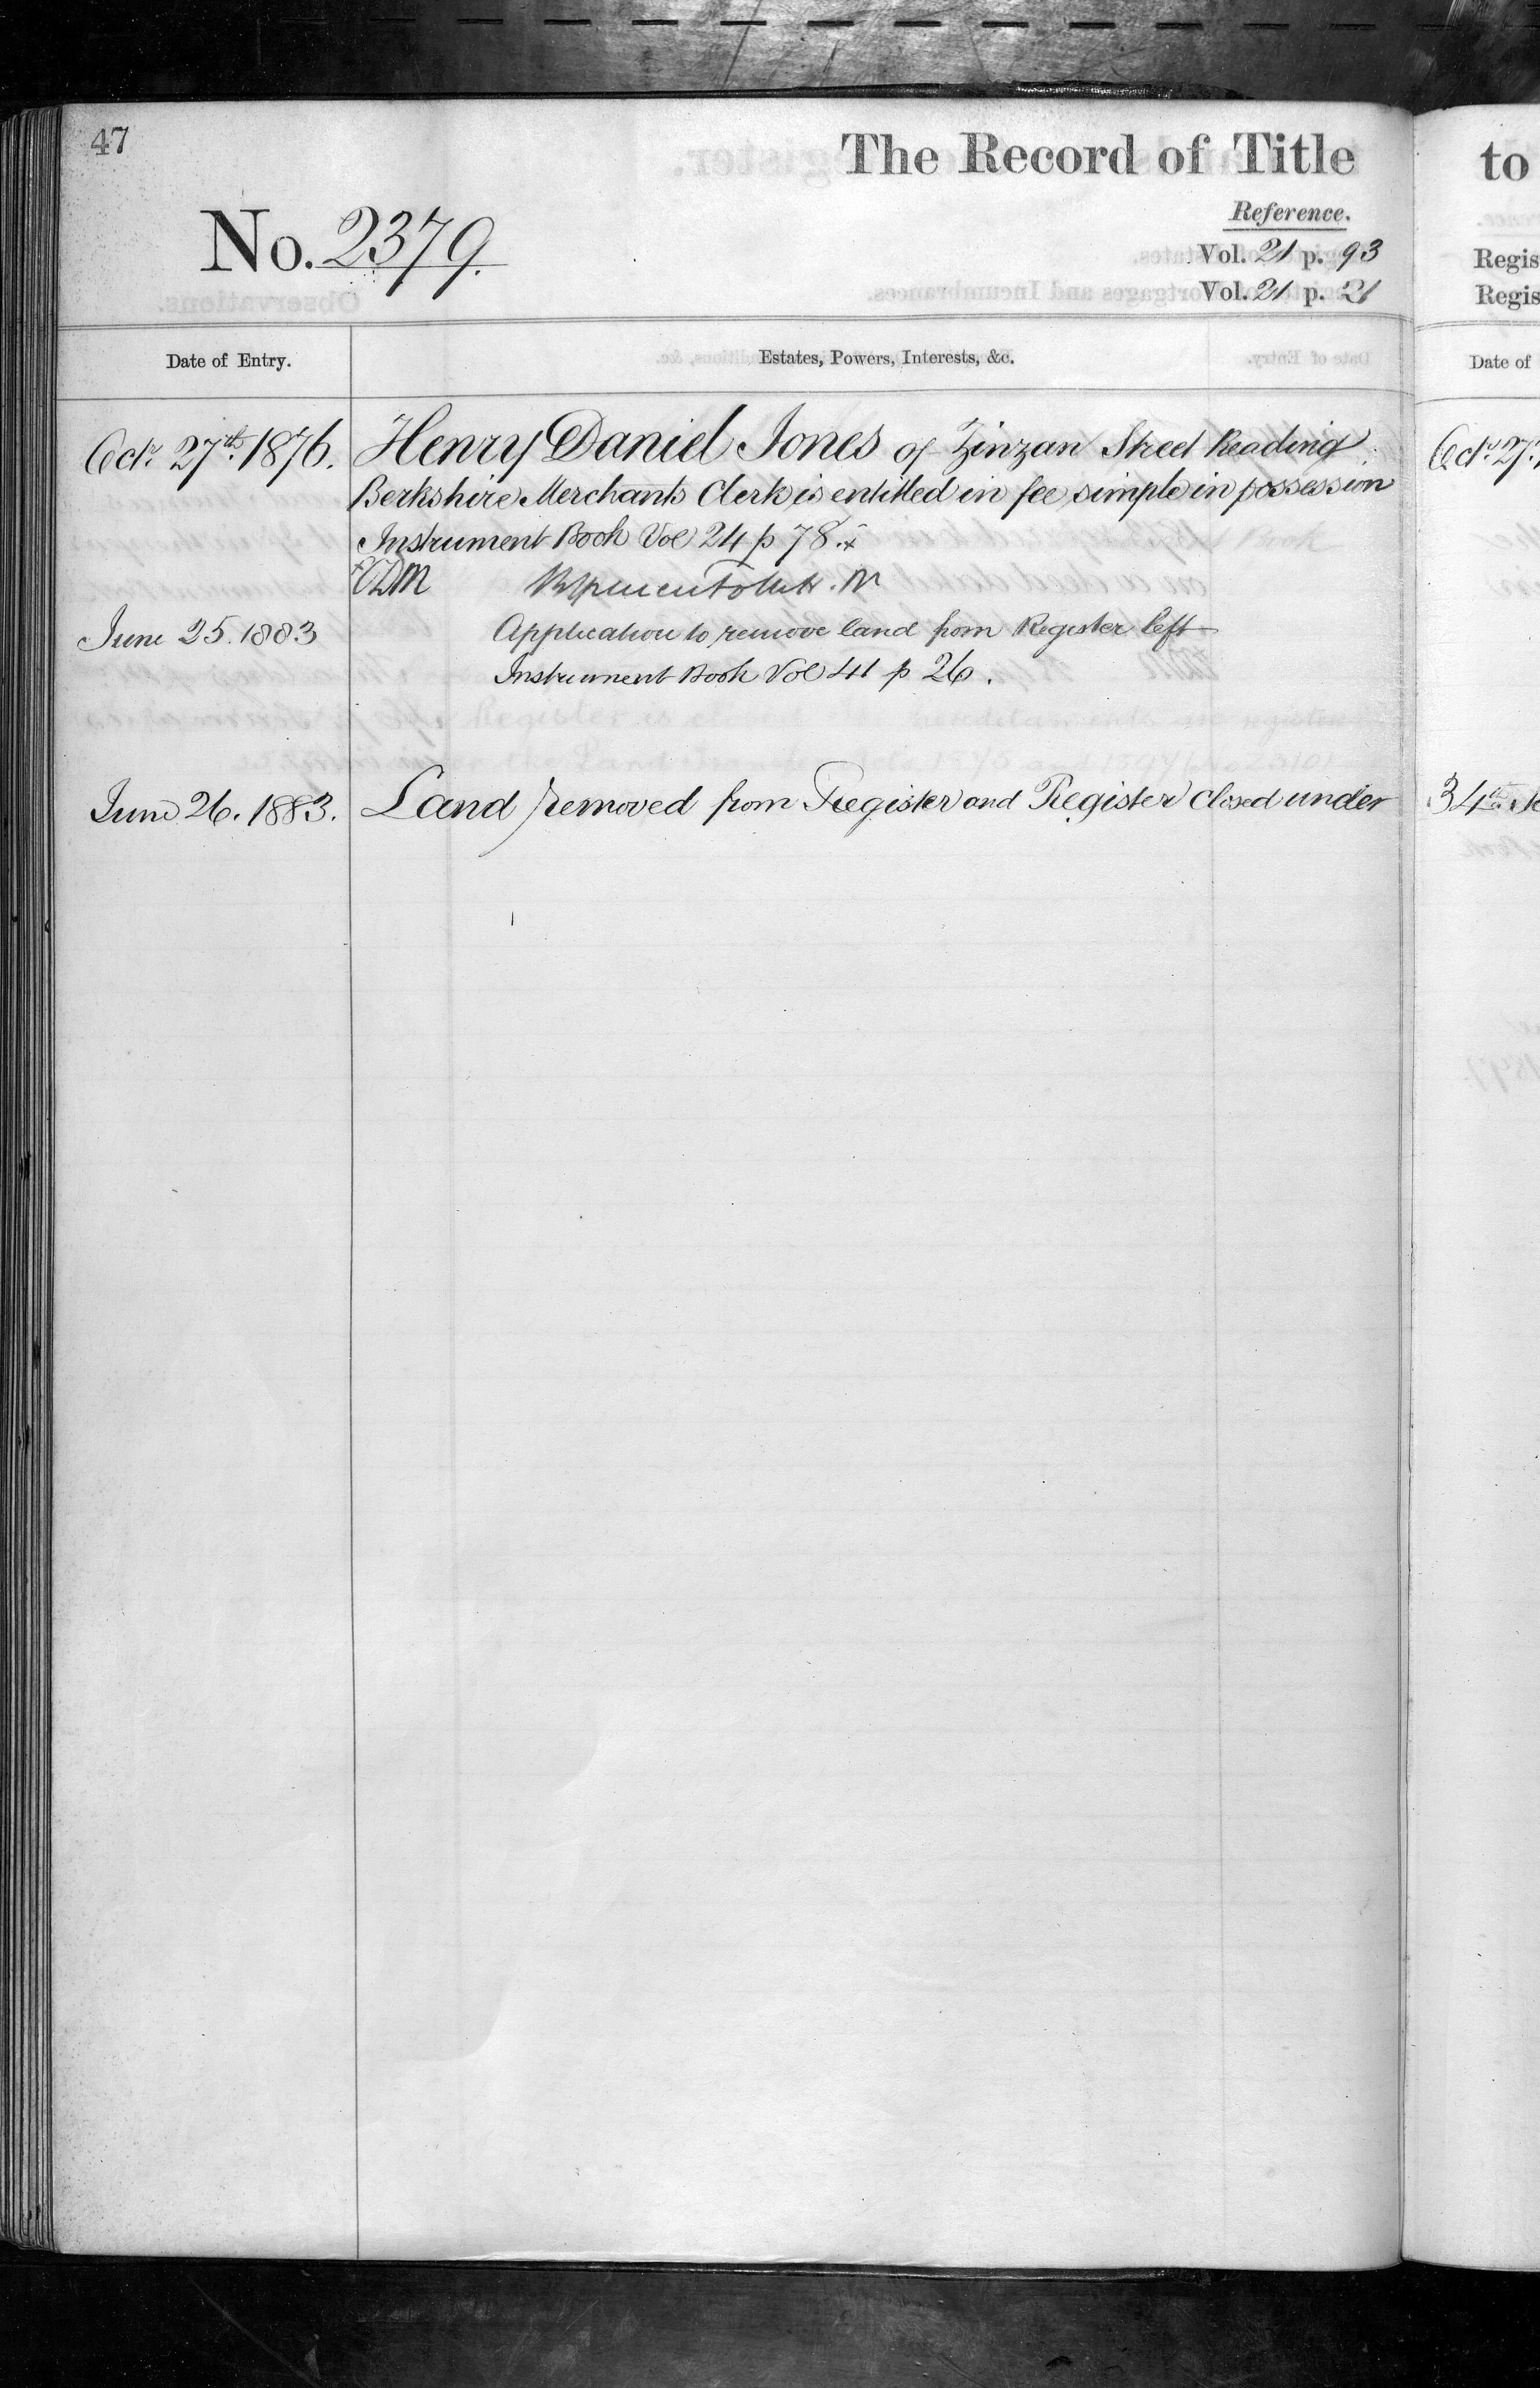 47
The Record of Title
to
No. 2379.
Reference.
Vol. 21 p. 93
Vol. 21 p. 21
Regis
Regis
Date of Entry.
Estates, Powers, Interests, &c.
Date of
Octr. 27th 1876.
Henry Daniel Jones of Zinzan Street Reading
Berkshire Merchants Clerk is entitled in fee simple in possession
Instrument Book Vol 24 p 78. x
June 25. 1883
Application to remove land from Register left
Instrument Book Vol 41 p 26.
June 26. 1883.
Land removed from Register and Register closed under
34th